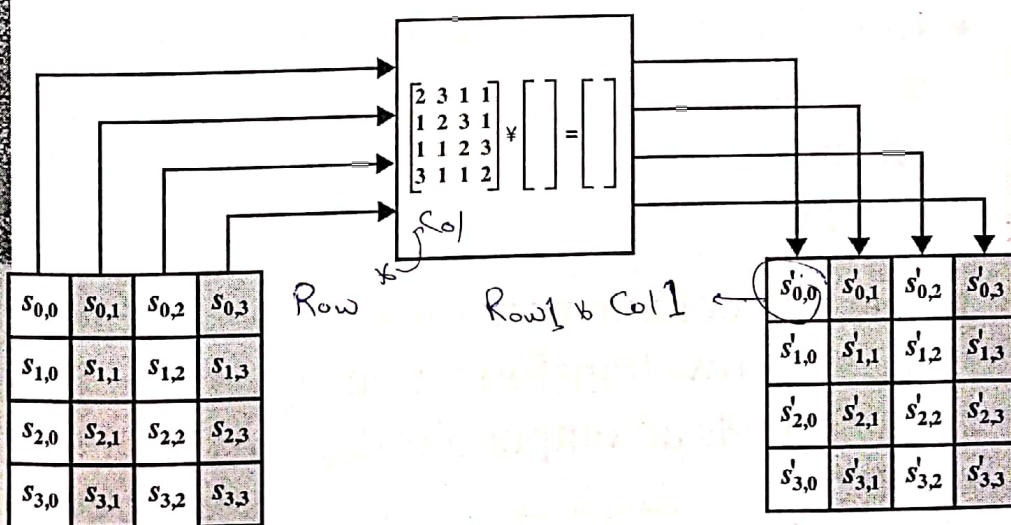 [2 3 1 1]
[1 2 3 1] ¥ [ ] = [ ]
[1 1 2 3]
[3 1 1 2]
Col
Row
Row1 Col1
s0,0 s0,1 s0,2 s0,3
s1,0 s1,1 s1,2 s1,3
s2,0 s2,1 s2,2 s2,3
s3,0 s3,1 s3,2 s3,3
s'0,0 s'0,1 s'0,2 s'0,3
s'1,0 s'1,1 s'1,2 s'1,3
s'2,0 s'2,1 s'2,2 s'2,3
s'3,0 s'3,1 s'3,2 s'3,3